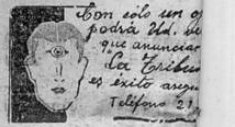 Con sólo un o
podrá Ud. ve
que anunciar
La Tribu
es éxito aseg
Teléfono 21